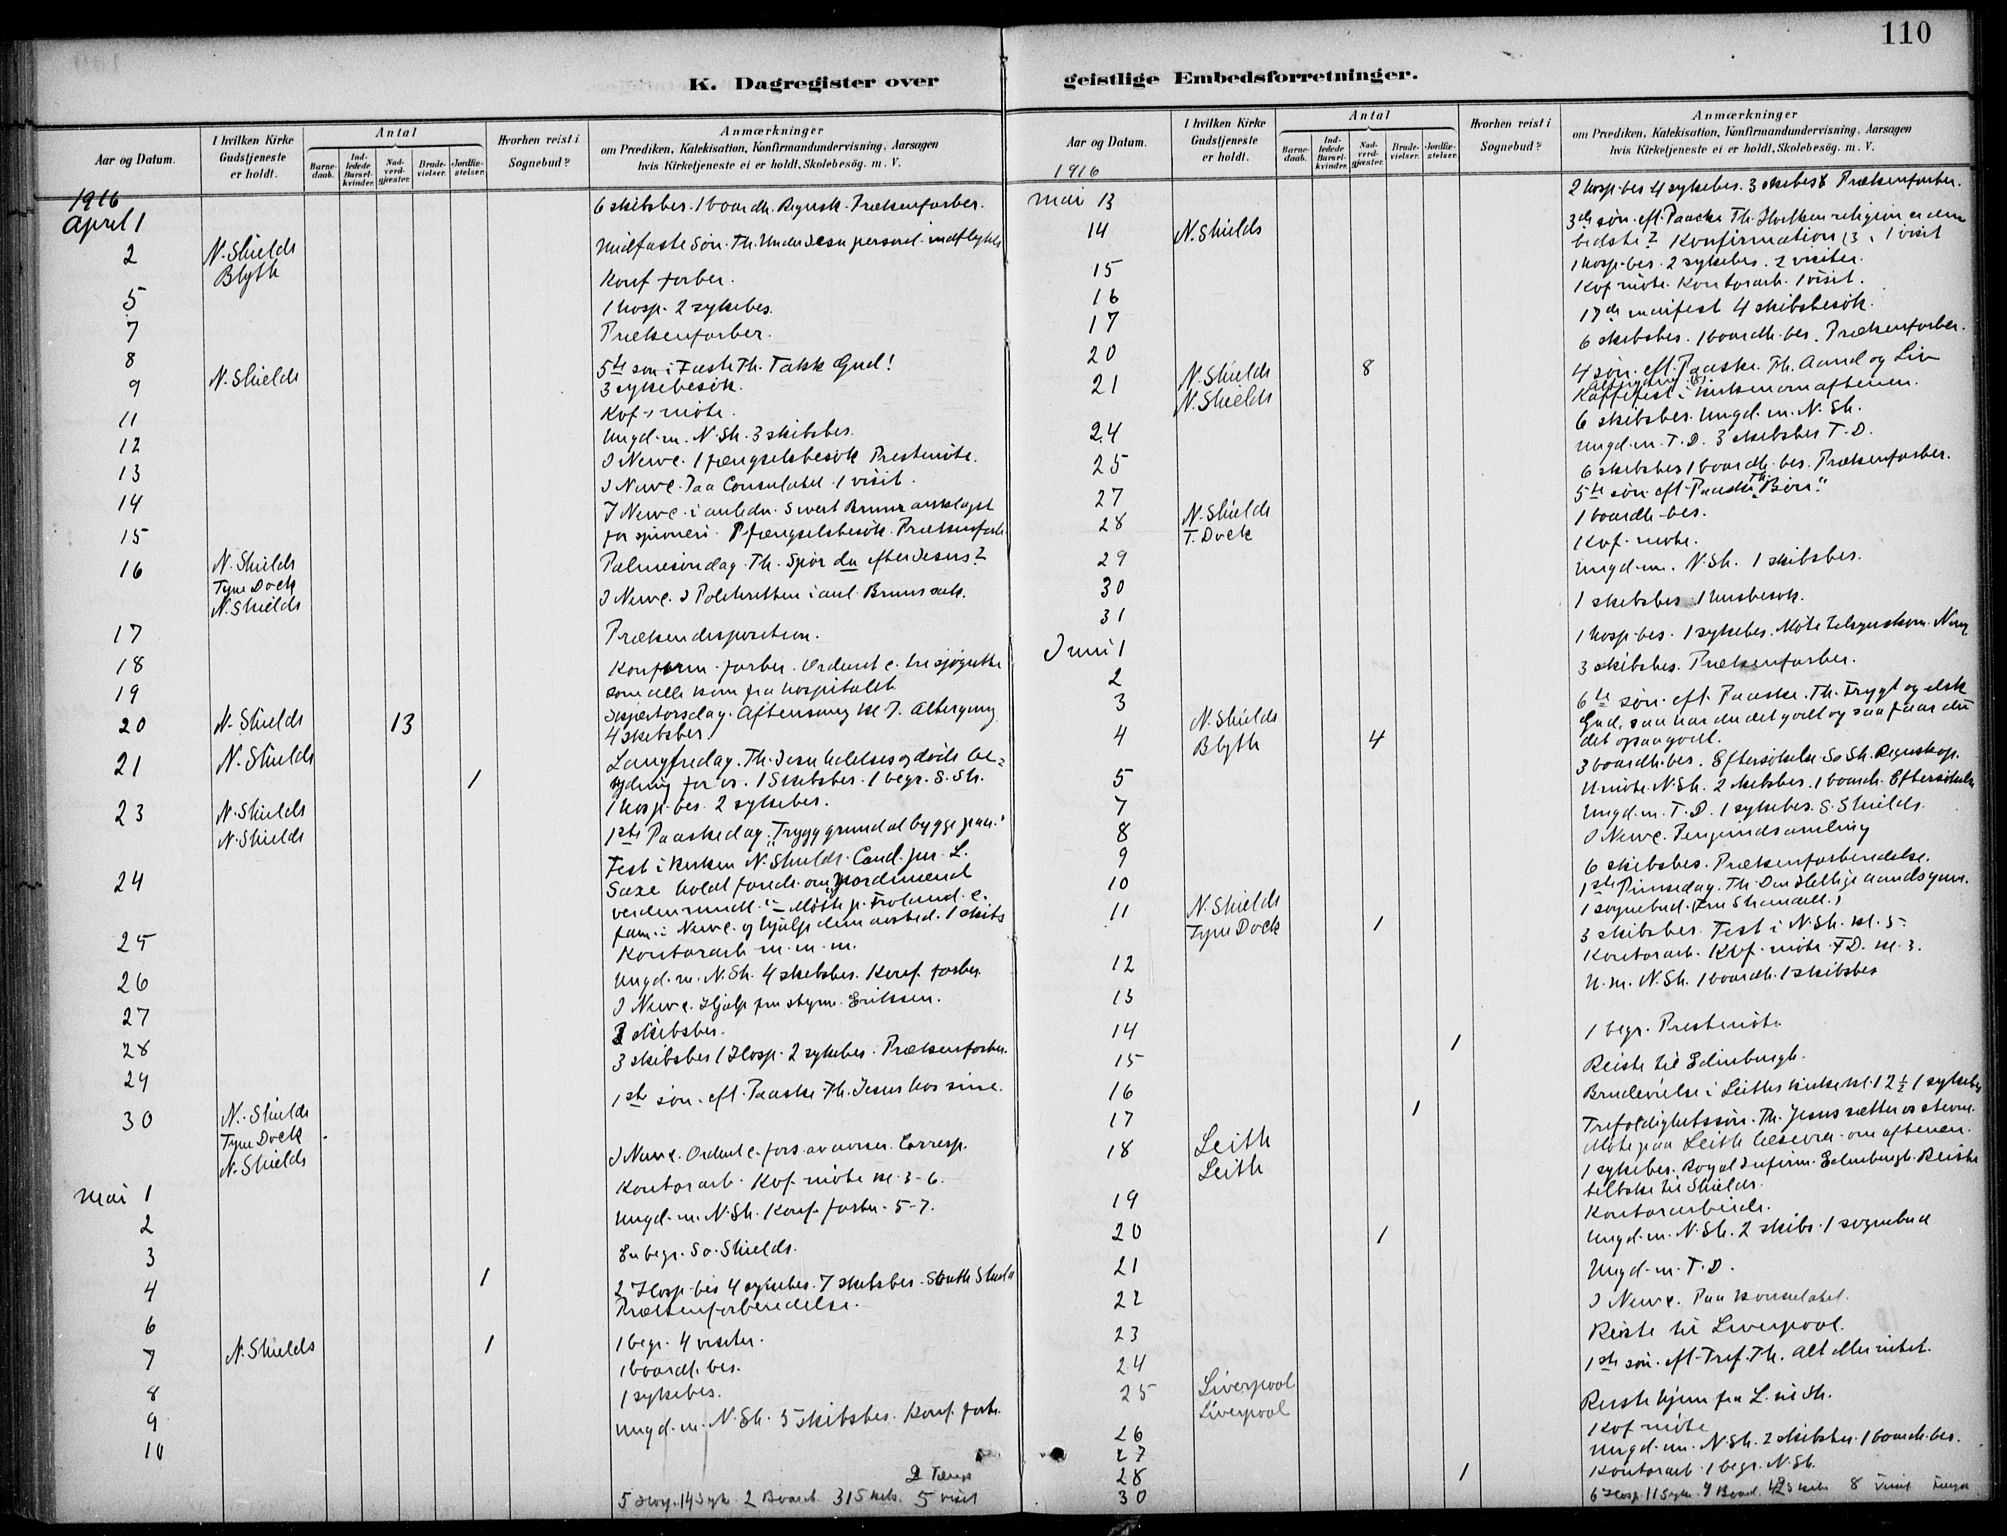 110
K. Dagregister over geistlige Embedsforretninger.
Aar og Datum.
I hvilken Kirke Gudstjeneste er holdt.
Antal
Barne-daab.
Ind-ledede Barsel-kvinder.
Nad-verd-gjæster.
Brude-vielser.
Jordfæ-stelser.
Hvorhen reist i Sognebud?
Anmærkninger
om Prædiken, Katekisation, Konfirmandundervisning, Aarsagen
hvis Kirketjeneste ei er holdt, Skolebesög. m. V.
1916
April 1 6 skibsbes. 1 boardh. Regnsk. Prækenforber.
2 N. Shields Midfaste Søn. Th. Under Jesu personl. indflydelse
Blyth
5 Konf forber.
7 1 hosp. 2 sykebes.
8 Prækenforber.
9 N. Shields 5te søn i Faste Th. Takk Gud!
3 sykebesök.
11 Kvf. möte.
12 Ungd. m. N. Sh. 3 skibsbes.
13 I Newc. 1 fængselsbesök Prestemöte.
14 I Newc. Paa Consulatet 1 visit.
15 I Newc. i anledn. Sivert Bruns anklaget
for spioneri. 1 fængselsbesök. Prækenforb.
16 N. Shields Palmesöndag. Th. Spör du efter Jesus?
Tyne Dock
N. Shields I Newc. I Politiretten i anl. Bruns sak.
17 Prækendisposition.
18 Konfirm. forber. Ordnet
19 som alle kom fra hospitalet.
20 N. Shields 13 Skjærtorsdag. Aftensang kl 7. Altergang
4 skibsbes.
21 N. Shields 1 Langfredag. Th. Jesu lidelses og döds be-
tydning for os. 1 Skibsbes. 1 begr. S. Sh.
1 hosp. bes. 2 sykebes.
23 N. Shields 1ste Paaskedag. "Trygg grund at bygge paa."
N. Shields
24 Fest i kirken N. Shields. Cand. jur. L.
Saxe holdt foredr. om "Nordmænd
verden rundt."
fam. i Newc. og hjalp dem avsted. 1 skibs
25 Kontorarb. m. m. m.
26 Ungd. m. N. Sh. 4 skibsbes. Konf. forber.
27 I Newc. Hjalp fru styrm. Eriksen.
28 2 skibsbes.
29 3 skibsbes 1 Hosp. 2 sykebes. Prækenforber.
30 N. Shields 1ste søn. eft. Paaske. Th. Jesus hos sine.
Tyne Dock
N. Shields
Mai 1 I Newc. Corresp.
2 Kontorarb. Kvf. möte kl. 3-6.
3 Ungd. m. N. Sh. Konf. forber. 5-7.
4 1 En begr. So. Shields.
6 2 Hosp. bes 4 sykebes. 7 skibsbes. South Shields
Prækenforberedelse.
7 N. Shields 1 1 begr. 4 visiter.
8 1 boardh. bes.
9 1 sykebes.
10 Ungd. m. N. Sh. 5 skibsbes. Konf. forb.
5 Hosp. 14 Syk. 2 Board. 31 Skibs. 5 visit
1916
Mai 13 2 hosp. bes 4 sykebes. 3 skibsbes Prækenforber.
14 N. Shields 3die søn. eft. Paaske Th. Hvilken religion er den
bedste? Konfirmation 13. 1 visit
15 1 hosp. bes. 2 sykebes. 2 visiter.
16 Kvf. möte. Kontorarb. 1 visit.
17 17de maifest 4 skibsbesök.
20 6 skibsbes. 1 boardh. bes. Prækenforber.
21 N. Shields 8 4 søn. eft. Paaske. Th. Aand og Liv
Altergang (8).
N. Shields Kaffefest i kirken om aftenen.
24 6 skibsbes. Ungd. m. N. Sh.
25 Ungd. m. T. D. 3 skibsbes T. D.
27 6 skibsbes 1 boardh. bes. Prækenforber.
28 N. Shields 5te søn. eft. Paaske Th. "Bön."
T. Dock 1 boardh. bes.
29 Kvf. möte.
30 Ungd. m. N. Sh. 1 skibsbes.
31 1 skibsbes 1 husbesök.
Juni 1 1 hosp. bes. 1 sykebes. Möte tilsynskom. Newc
2 3 skibsbes. Prækenforber.
3
4 N. Shields 6te søn. eft. Paaske. Th. Frygt og elsk
Gud, saa har du det godt og saa faar du
Blyth 4 det ogsaa godt.
5 3 boardh. bes. Eftersökelse So Sh. Regnskap.
7 U. möte. N. Sh. 2 skibsbes. 1 boardh. Eftersökelse
8 Ungd. m. T. D. 1 sykebes. S. Shields.
9 I Newc. Pengeindsamling
10 6 skibsbes. Prækenforberedelse.
11 N. Shields 1ste Pinsedag. Th. Den Hellige aands
Tyne Dock 1 1 sognebud.
12 3 skibsbes. Fest i N. Sh. kl. 5
13 Kontorarb. Kvf. möte. T. D. kl. 3.
14 U. m. N. Sh. 1 boardh. 1 skibsbes
15 1 1 begr. Prestemöte
16 Reiste til Edinburgh.
17 1 Brudevielse i Leiths kirke kl. 12½ 1 sykebes
18 Leith Trefoldighetssøn. Th. Jesus sætter os stevne.
Leith Möte paa Leith læseva. om aftenen.
19 1 sykebes. Royal Infirm. Edinburgh. Reiste
tilbake til Shields.
20 1 Kontorarbeide.
21 Ungd. m. N. Sh. 2 skibs. 1 sognebud
22 Ungd. m. T. D.
23 I Newc. Paa Konsulatet.
24 Reiste til Liverpool.
25 Liverpool 1ste søn. eft. Tref. Th. Alt eller intet.
Liverpool
26 Reiste hjem fra L. til Sh.
27 Kvf. möte
28 1 Ungd. m. N. Sh. 2 skibsbes. 1 boardh. bes.
30 Kontorarb. 1 begr. N. Sh.
6 Hosp. 11 Syke. 9 Board. 42 Skibs. 8 Visit